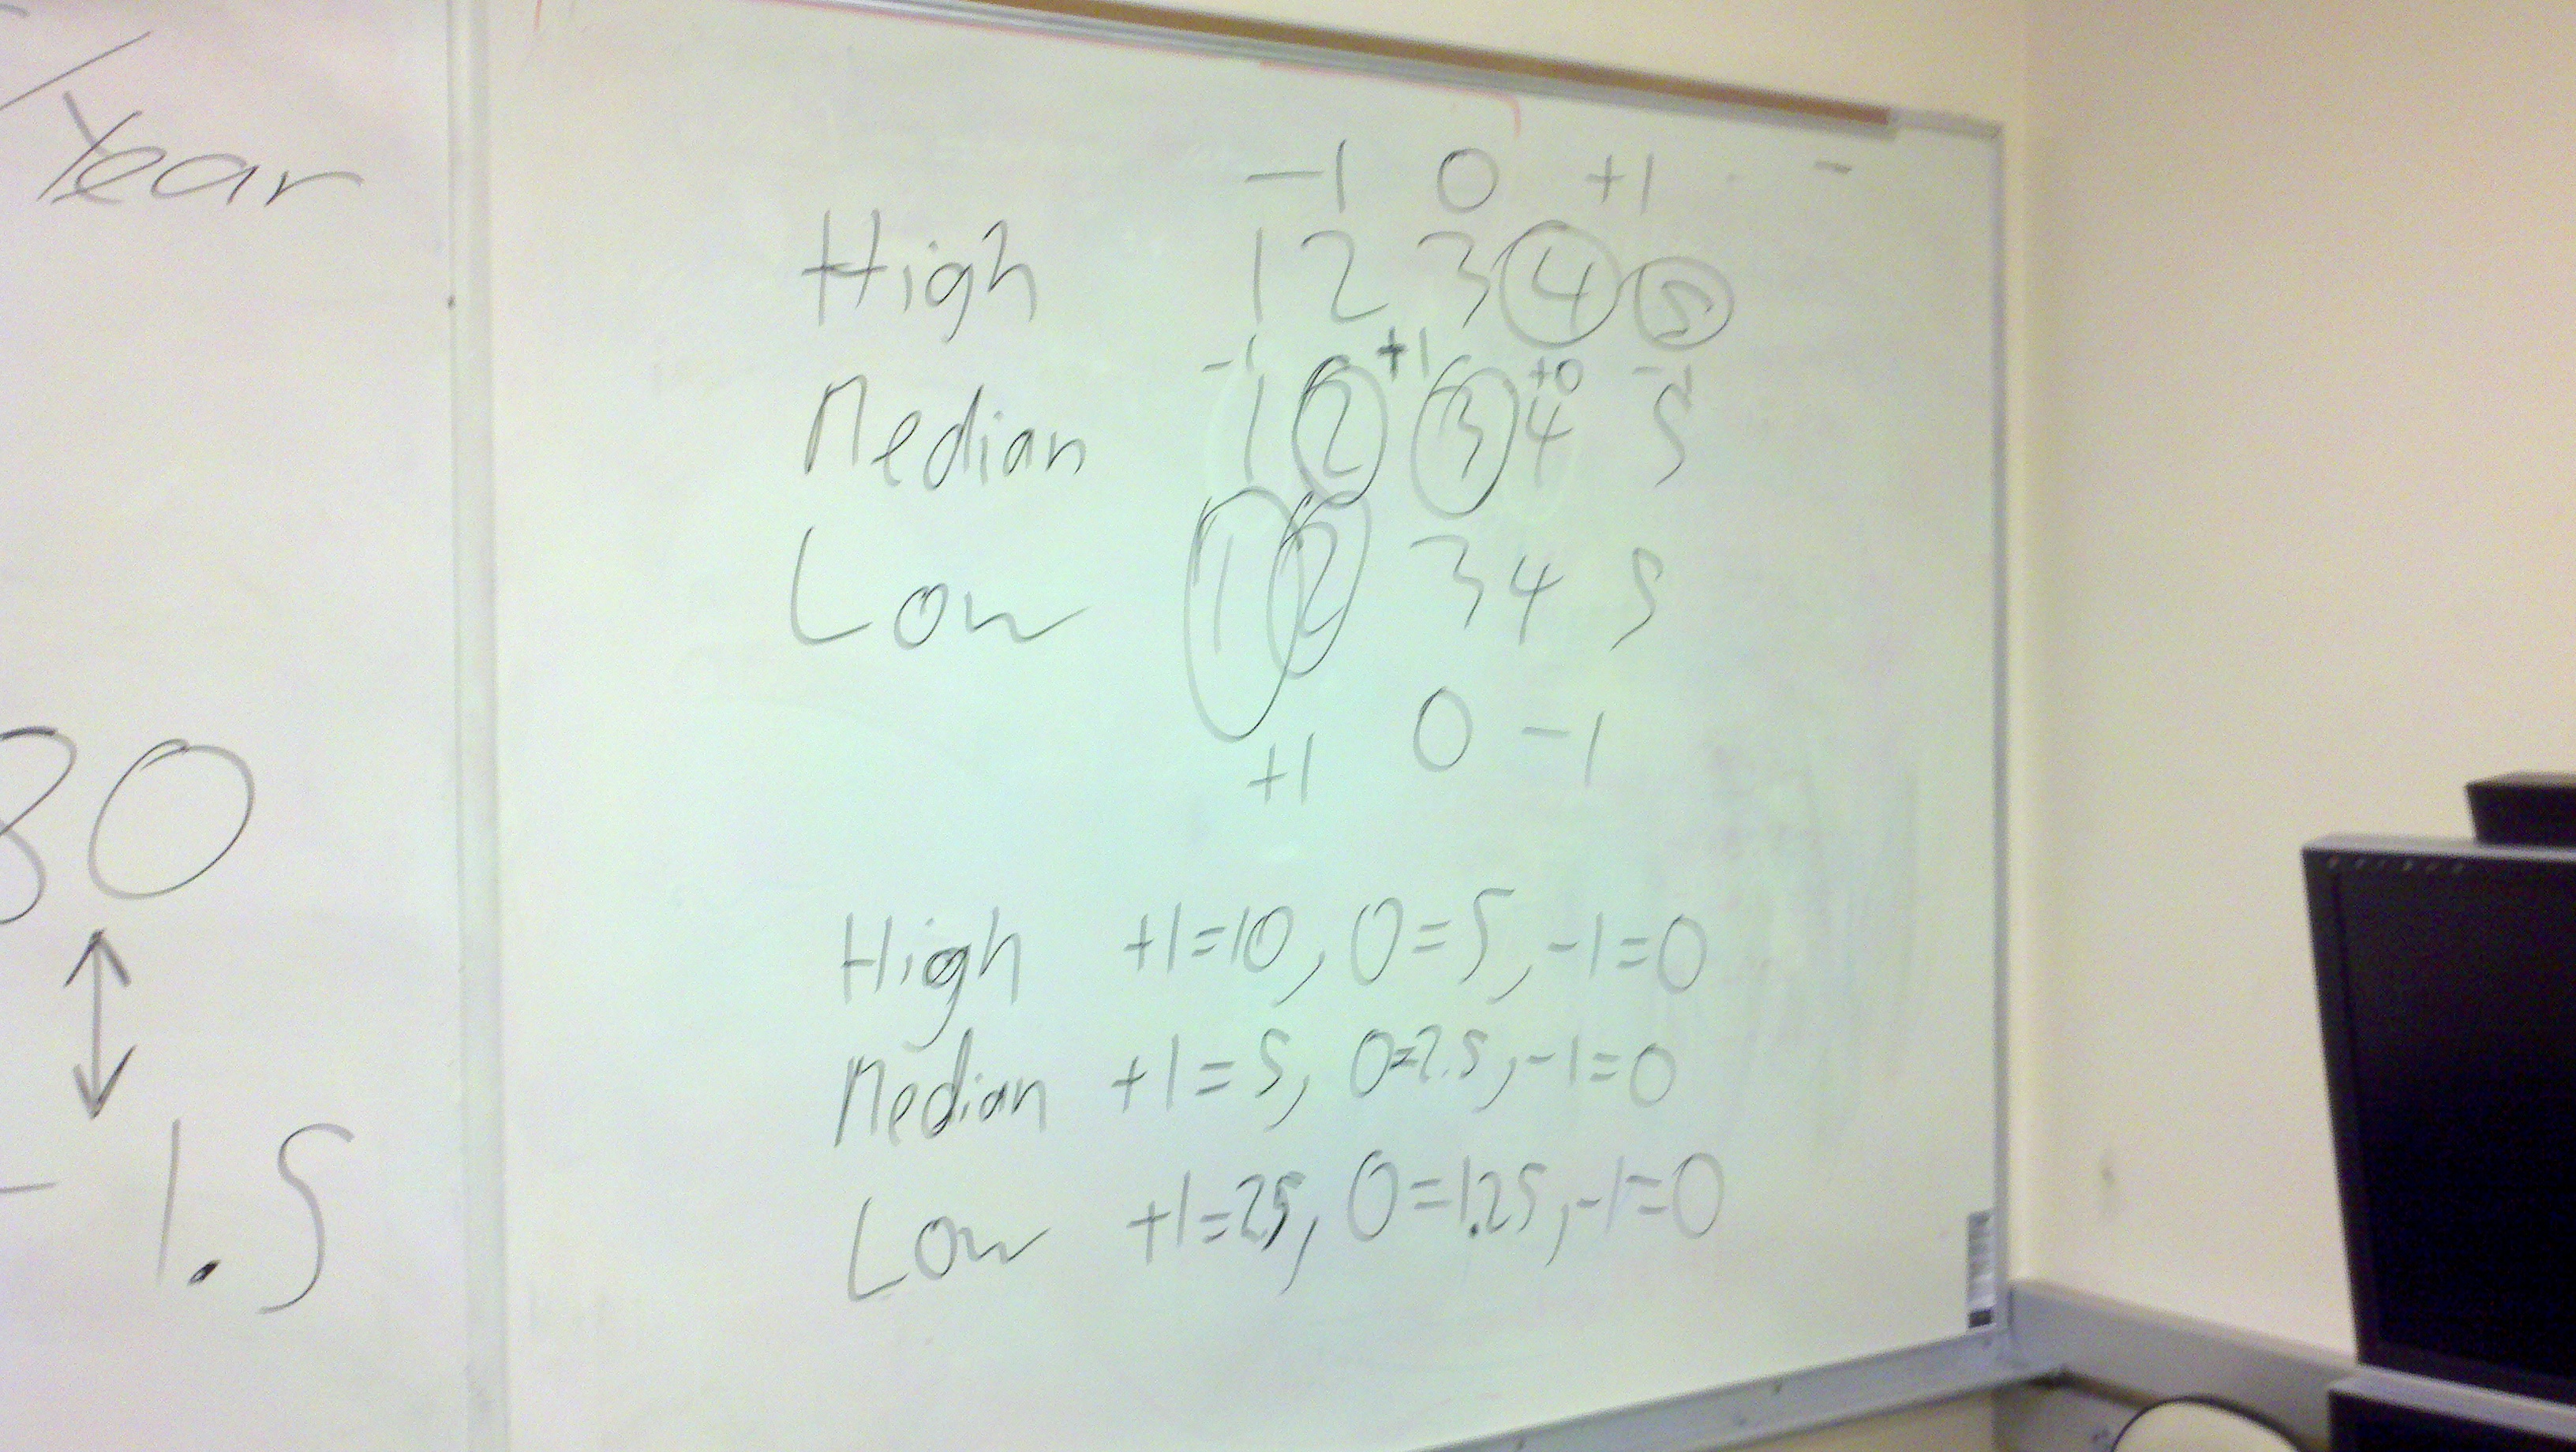 /Year
30
- 1.5
-1 0 +1 -
High 1 2 3 4 5
-1 +1 +0 -1
Median 1 2 3 4 5
Low 1 2 3 4 5
+1 0 -1
High +1=10, 0=5, -1=0
Median +1=5, 0=2.5, -1=0
Low +1=25, 0=1.25, -1=0